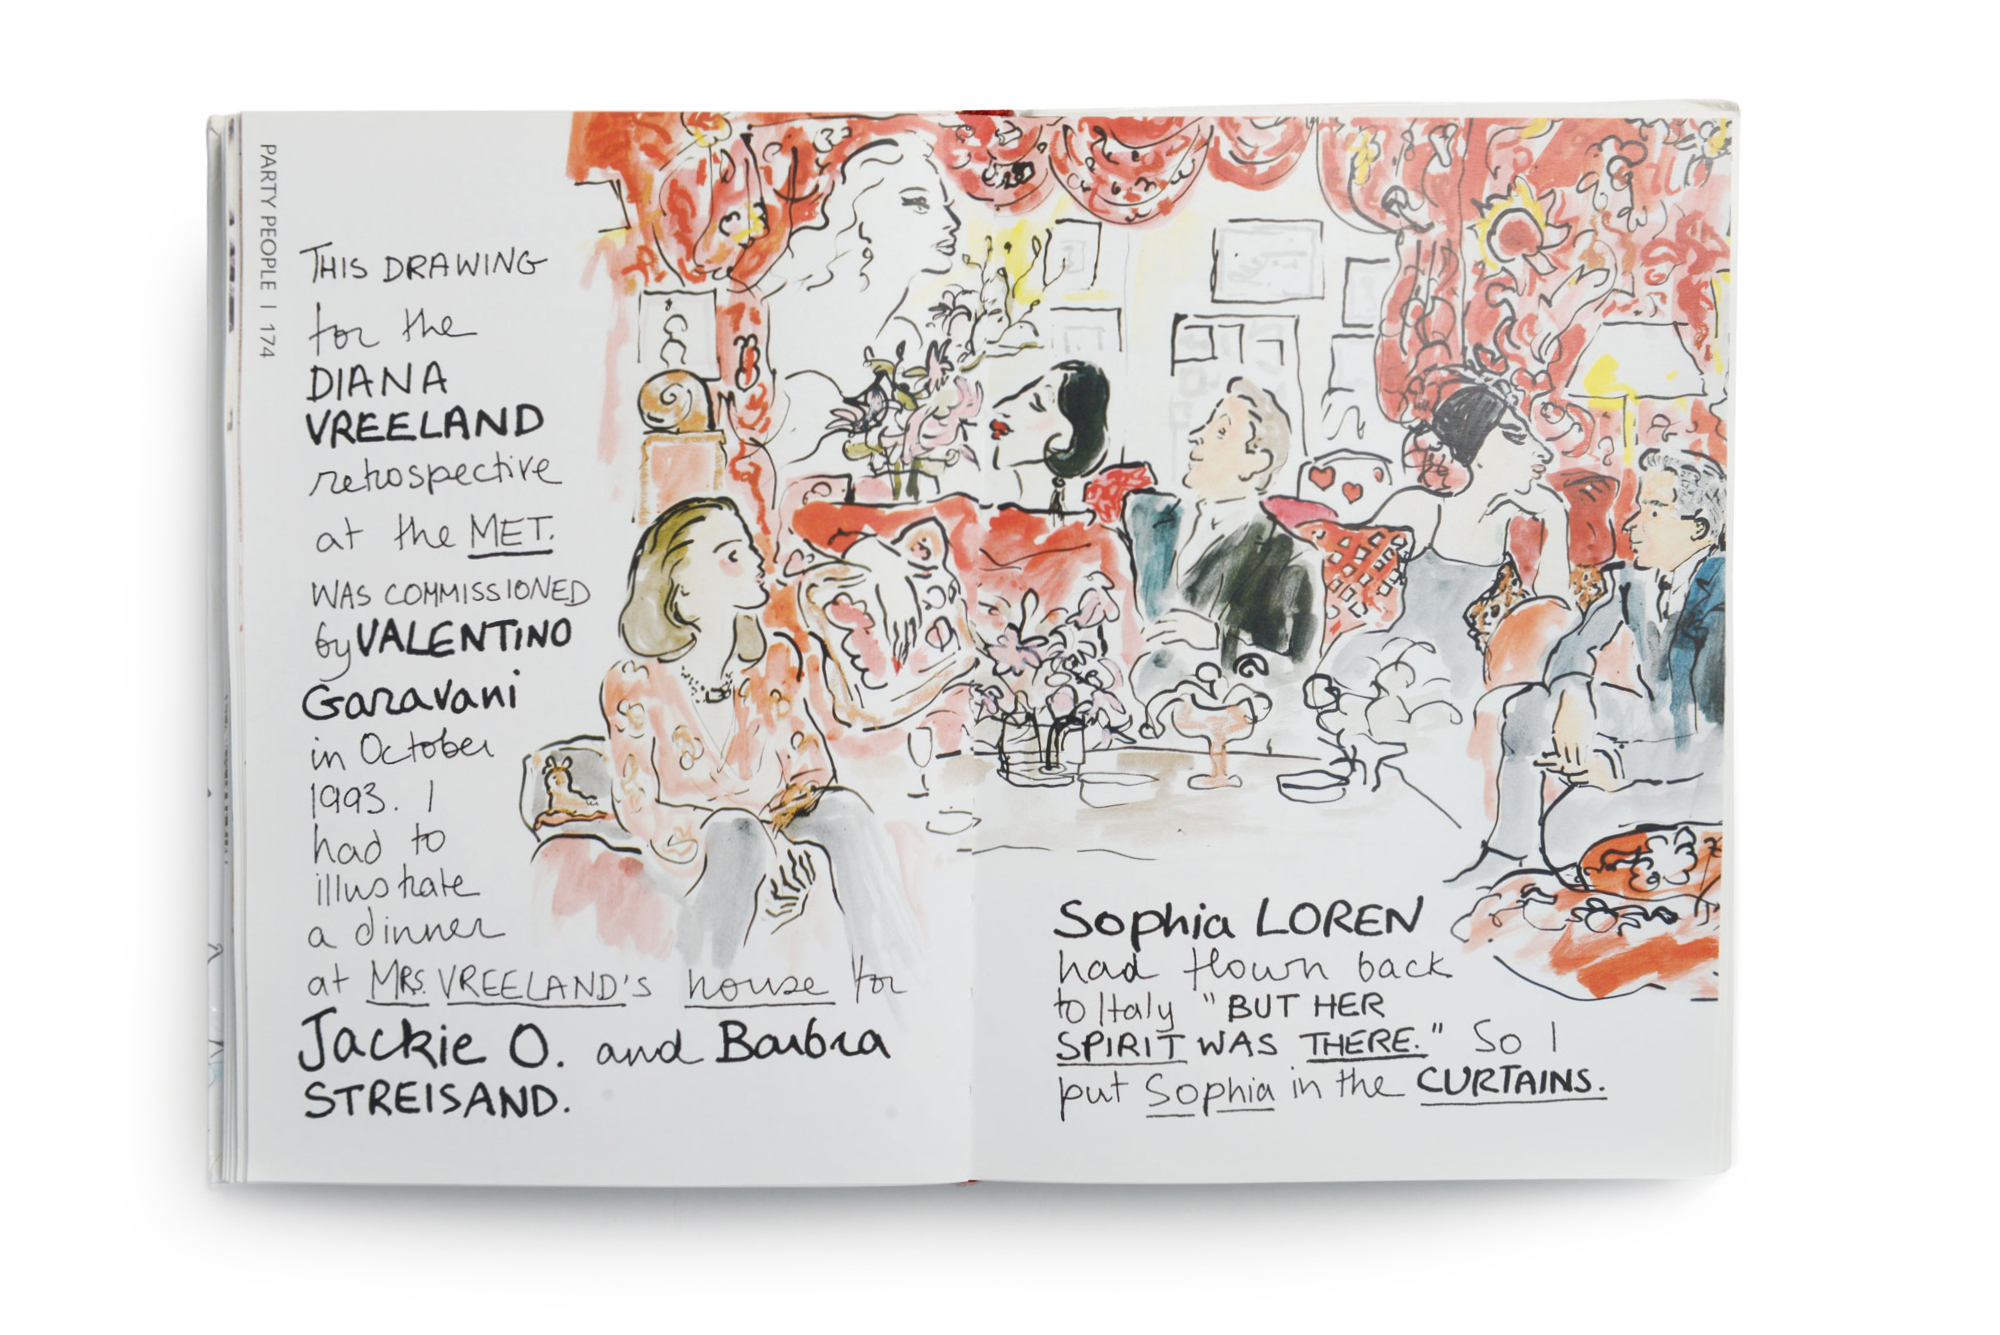 PARTY PEOPLE | 174
THIS DRAWING
for the
DIANA
VREELAND
retrospective
at the MET.
WAS COMMISSIONED
by VALENTINO
Garavani
in October
1993. I
had to
illustrate
a dinner
at MRS. VREELAND'S house for
Jackie O. and Barbra
STREISAND.
Sophia LOREN
had flown back
to Italy "BUT HER
SPIRIT WAS THERE." So I
put Sophia in the CURTAINS.